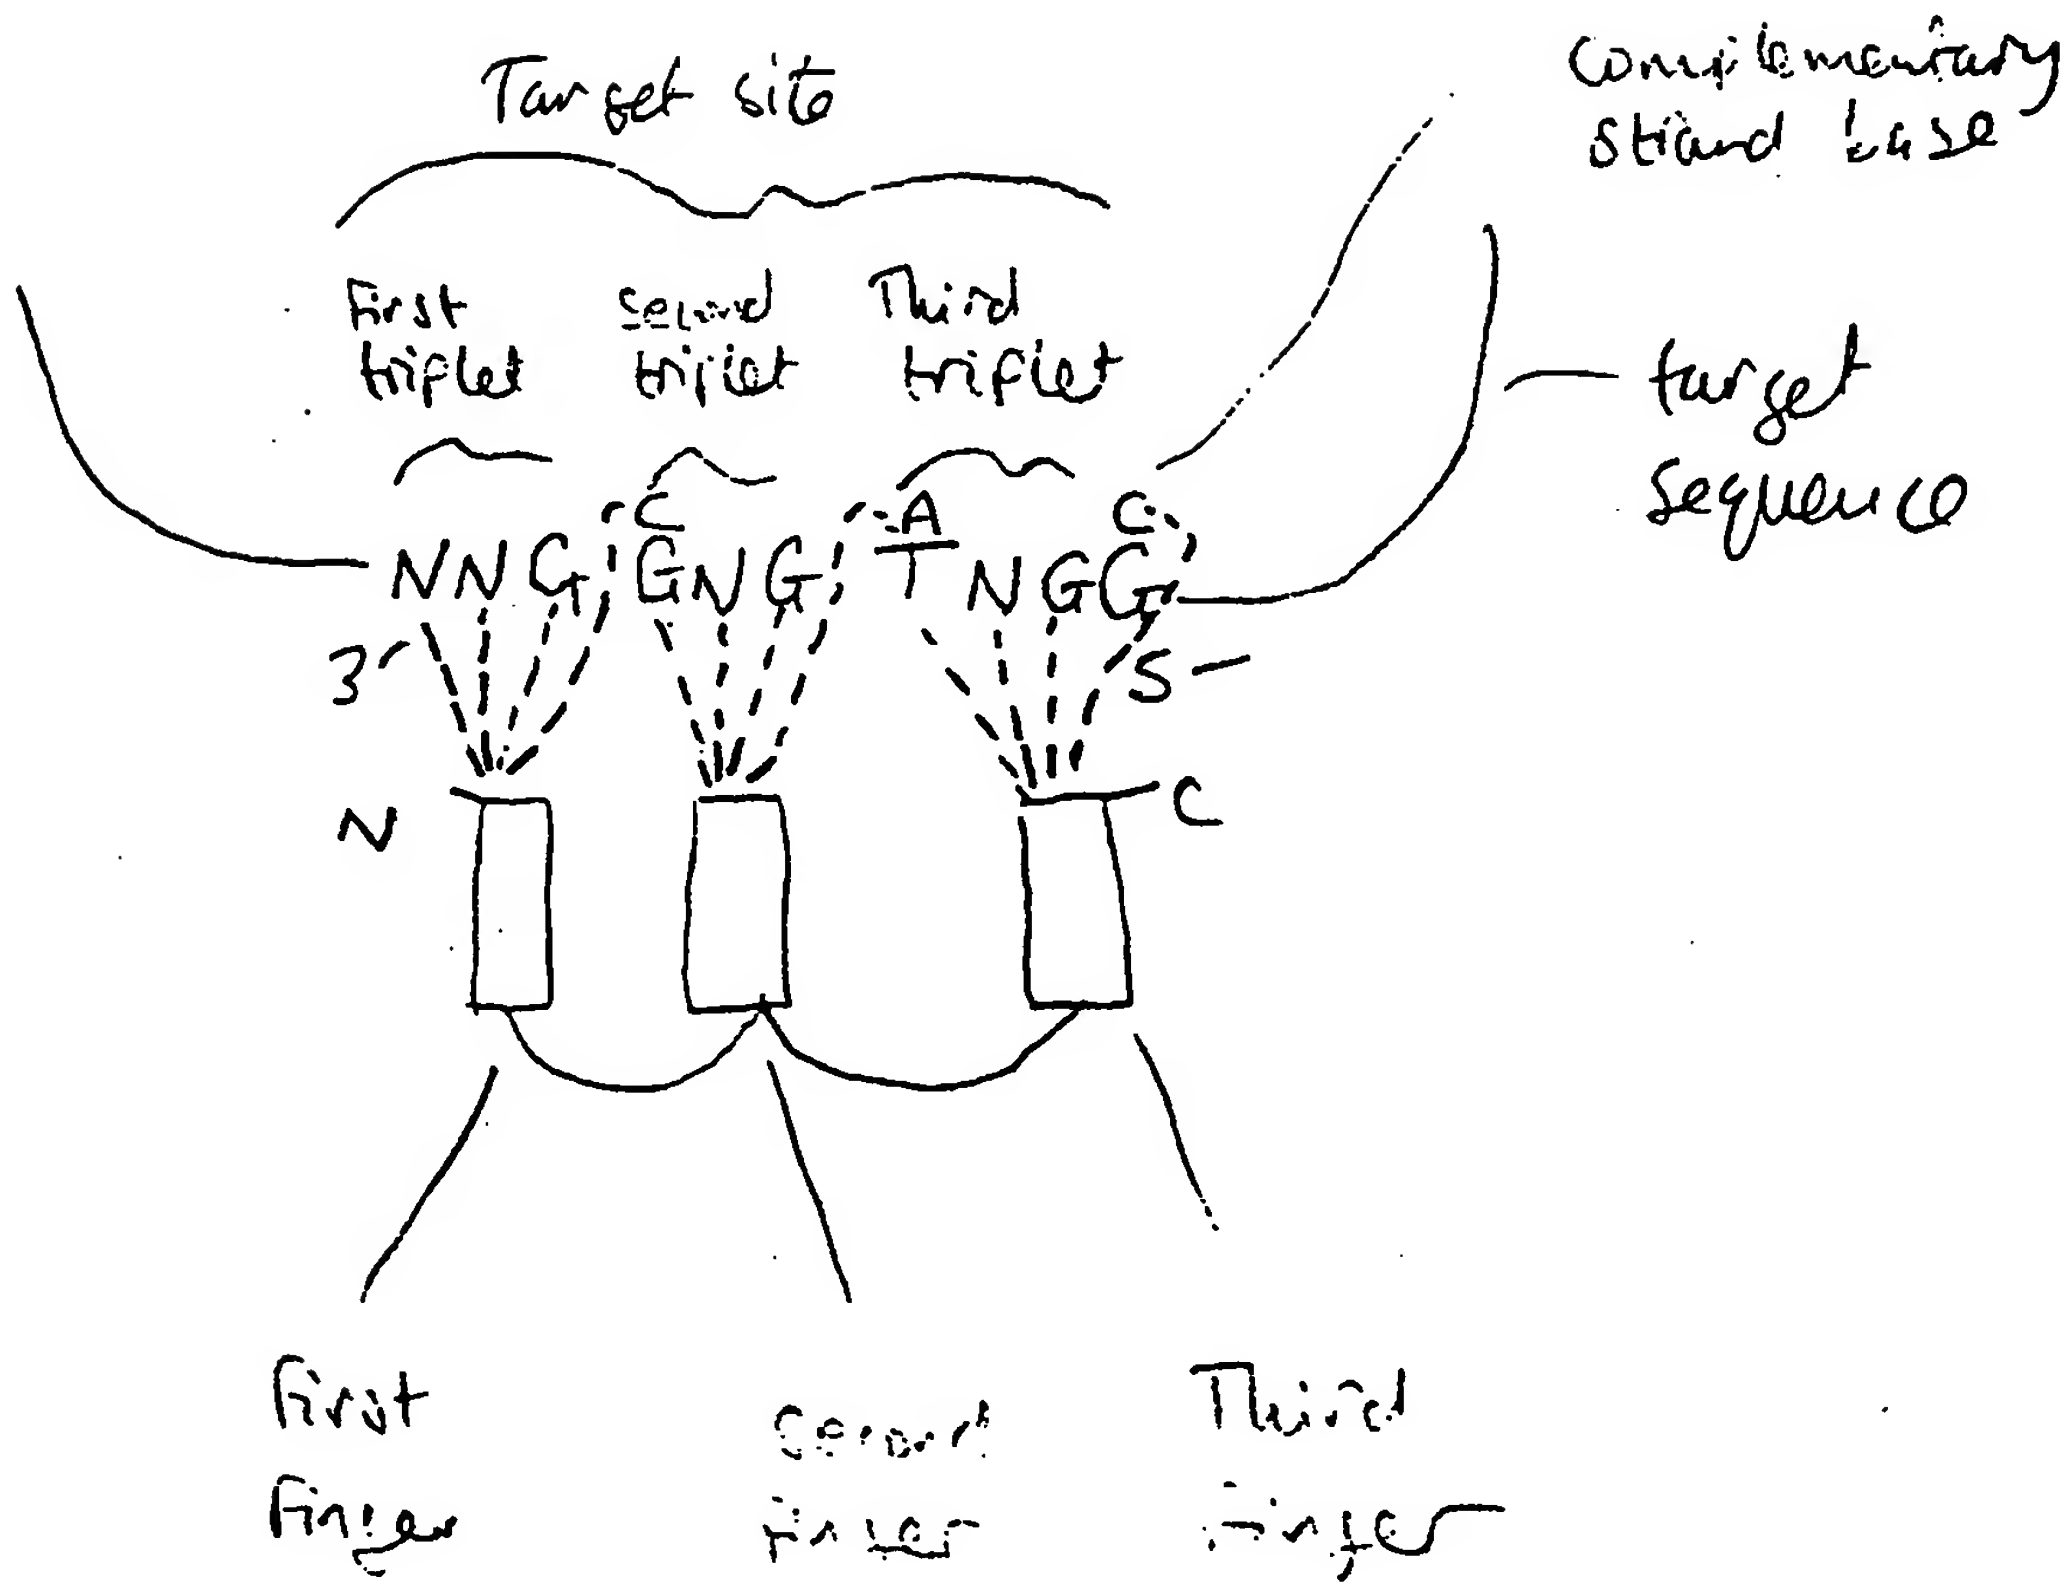 Target site
complementary
strand base
First
triplet
second
triplet
Third
triplet
target
sequence
C A C
N N G G N G T N G G
3'
5-
N
C
First
Finger
Second
Finger
Third
Finger